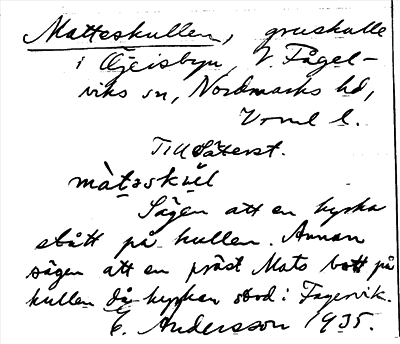 Matteskullen, gruskulle
i Öjeisbyn, V. Fågel-
viks sn, Nordmarks hd,
Vrml l.
Till Säterst.
màtaskul
Sägen att en kyrka
stått på kullen. Annan
sägen att en präst Mats bott på
kullen då kyrkan stod i Fagervik.
E. Andersson 1935.